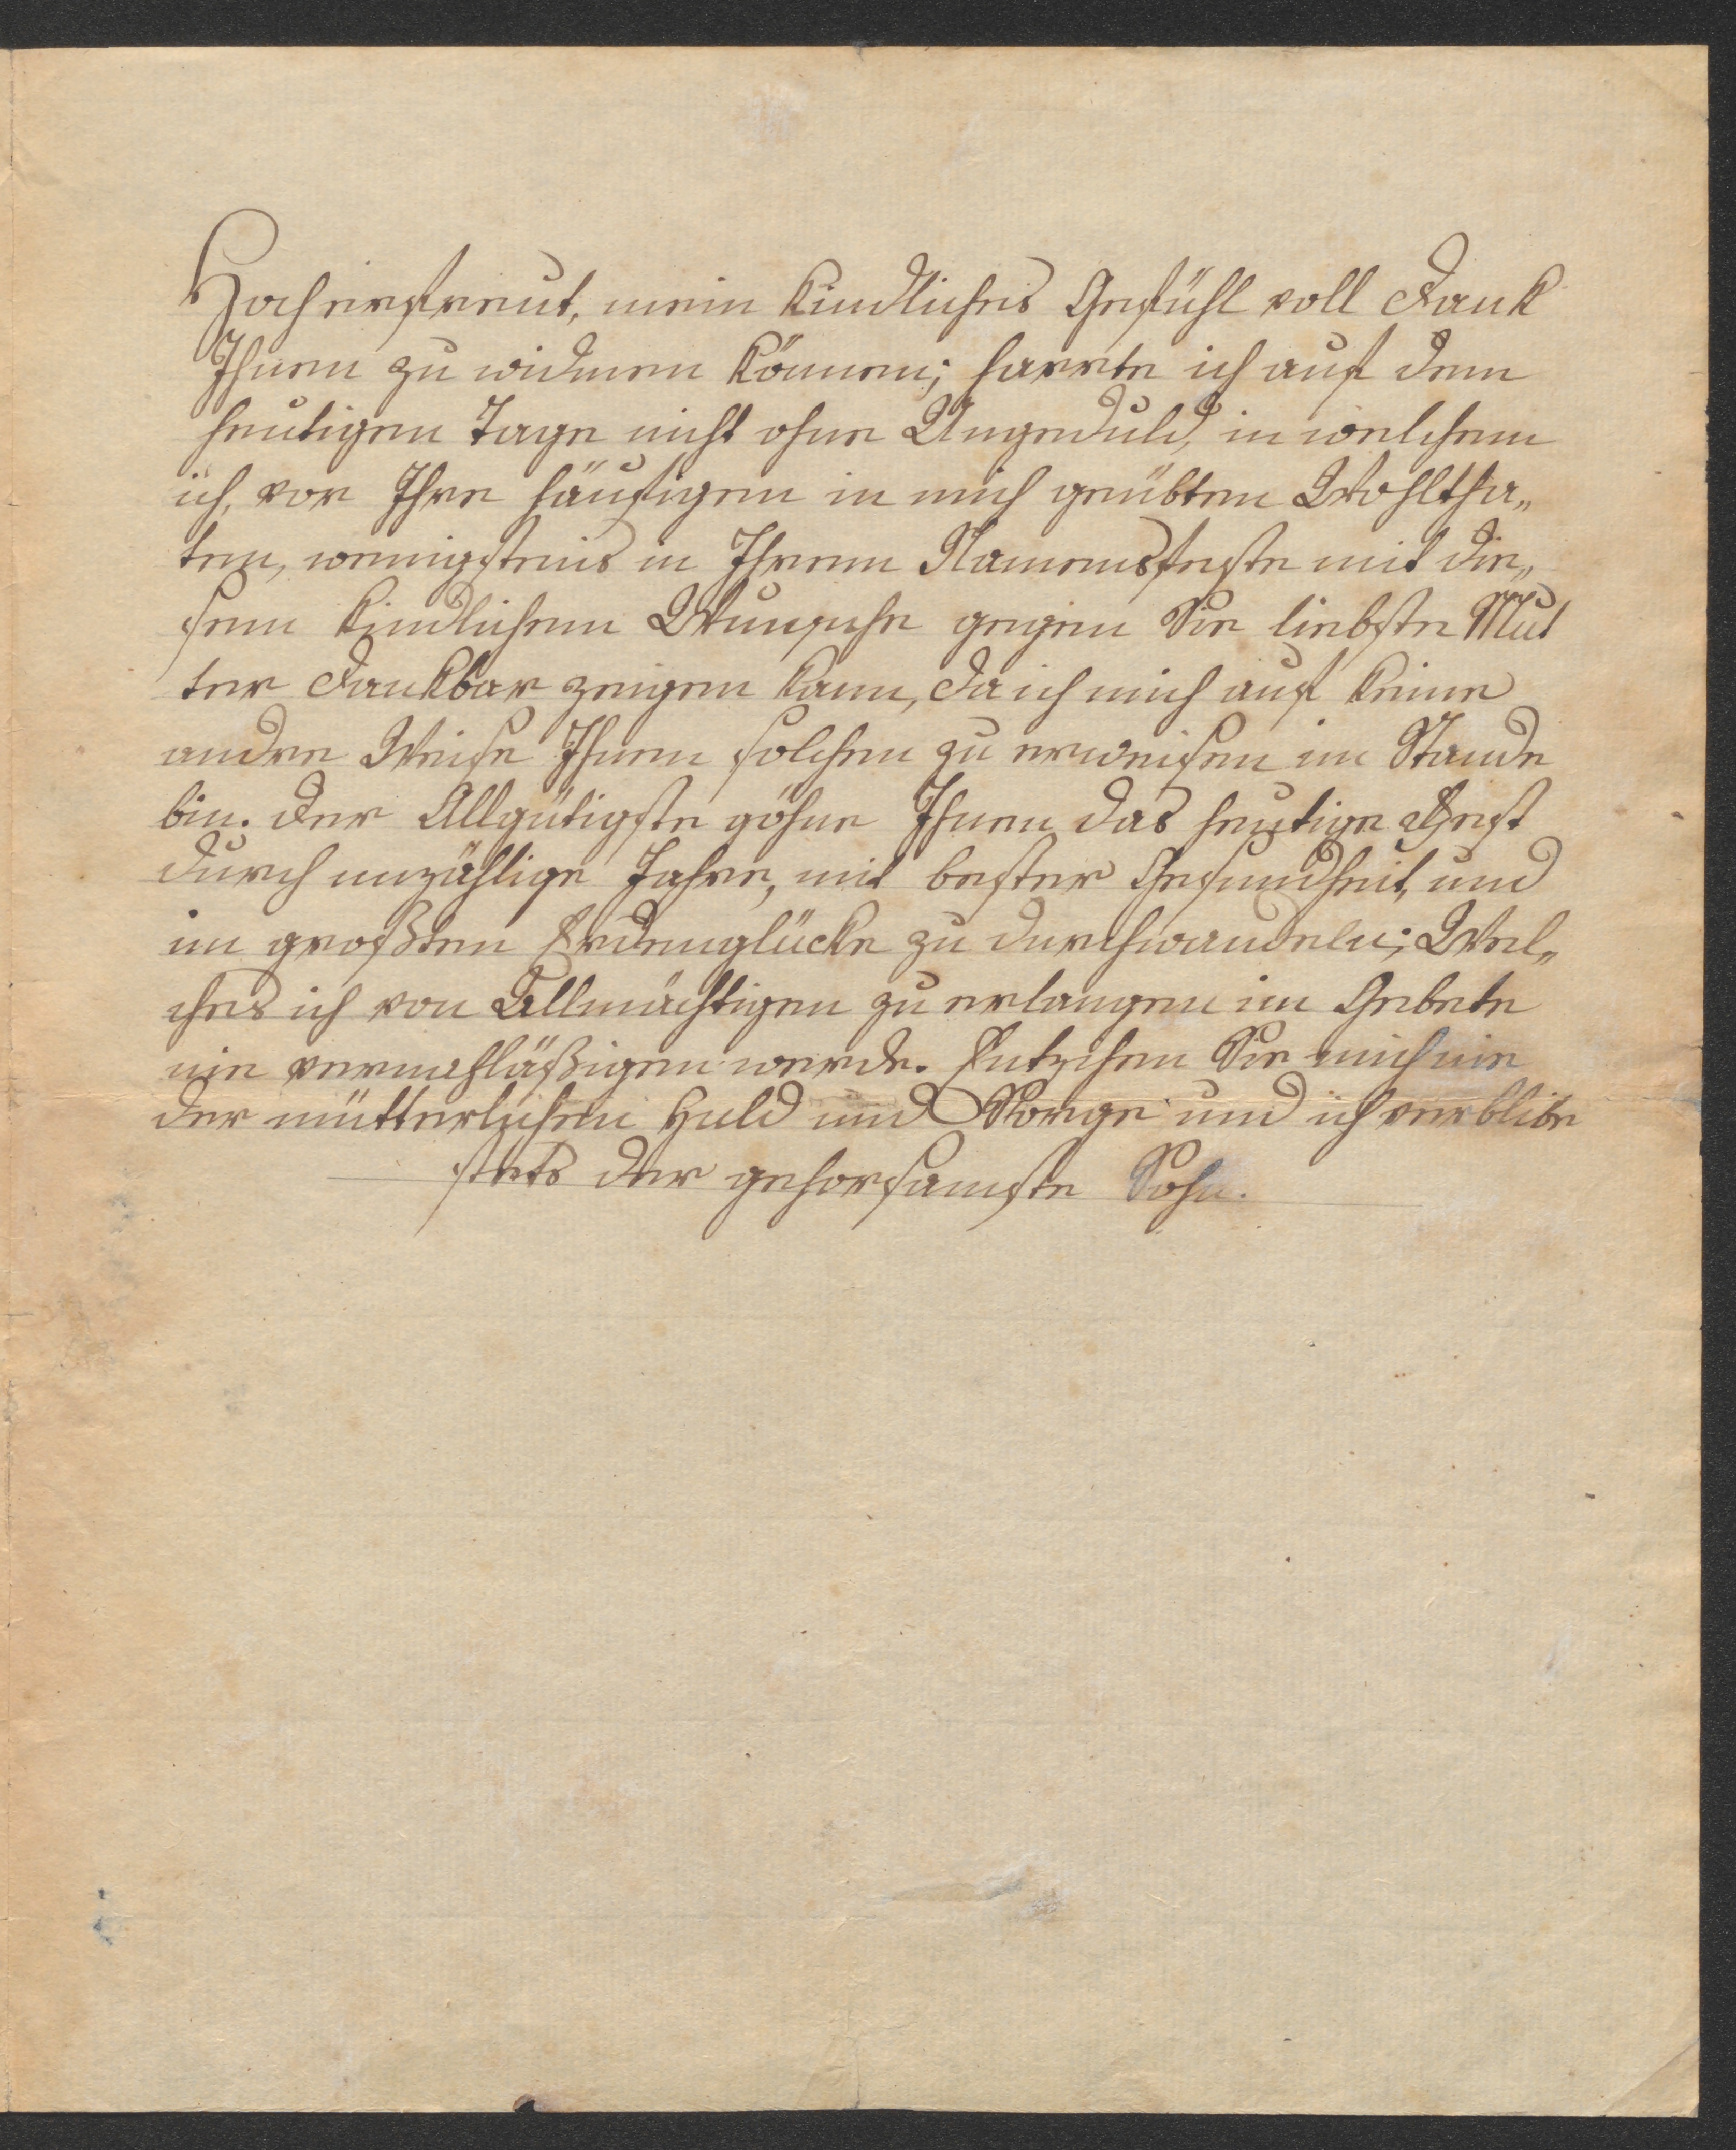 Hocherfreut, mein kindliches Gefühl voll Dank
Ihnen zu widmen können; harrte ich auf dem
heutigen Tage nicht ohne Ungeduld, in welchem
ich, vor Ihre häufigen in mich geübten Wohltha„
ten, wenigstens in Ihrem Namensfeste mit die„
sem kindlichem Wunsche gegen Sie liebste Mut
ter dankbar zeigen kann, da ich mich auf keine
andre Weise Ihnen solchen zu erweisen im Stande
bin. Der Allgütigste göhne Ihnen das heutige Fest
durch unzählige Jahre, mit bester Gesundheit, und
im großten Erdenglücke zu durchwandeln; Wel„
ches ich von Allmächtigen zu erlangen im Gebete
nie vernachläßigen werde. Entzihen Sie mich nie
der mütterlichen Huld und Sorge und ich verblibe
stets der gehorsamste Sohn.